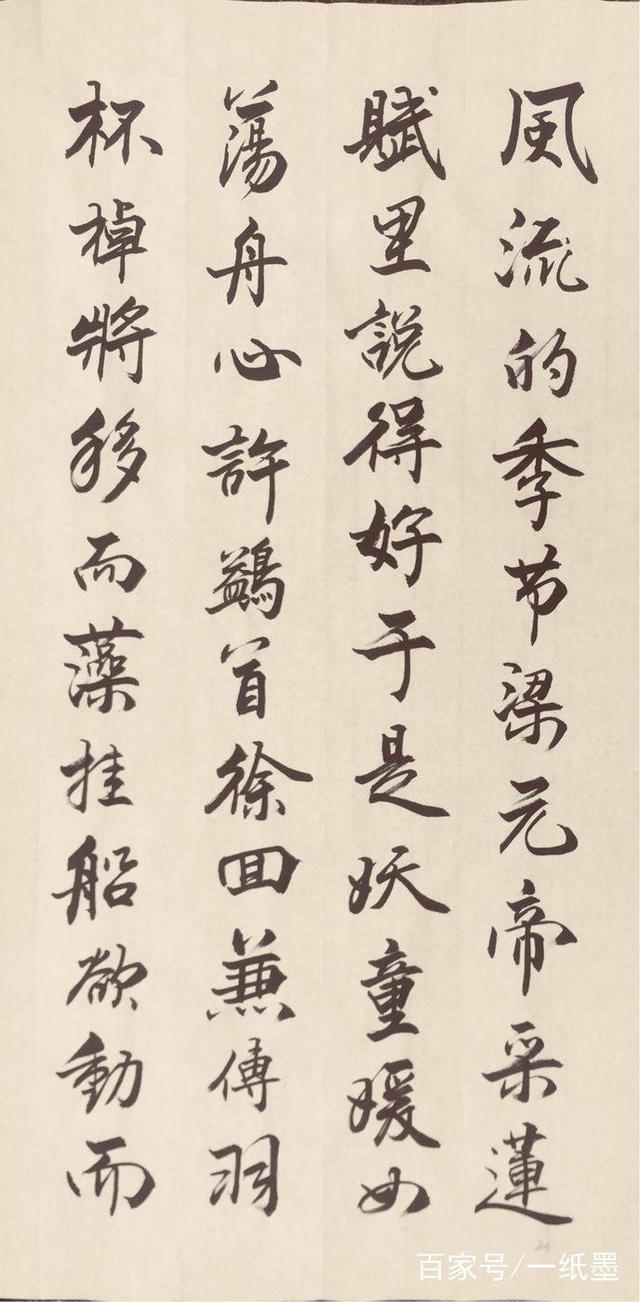 風流的季节梁元帝采蓮
賦里說得好于是妖童媛女
蕩舟心許鷁首徐回兼傳羽
杯棹將移而藻挂船欲動而
百家号/一纸墨